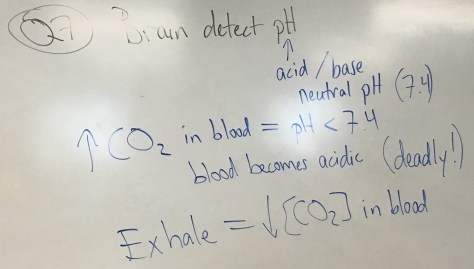 Q7 Brain detect pH
↑
acid / base
neutral pH (7.4)
↑ CO₂ in blood = pH < 7.4
blood becomes acidic (deadly!)
Exhale = ↓ [CO₂] in blood